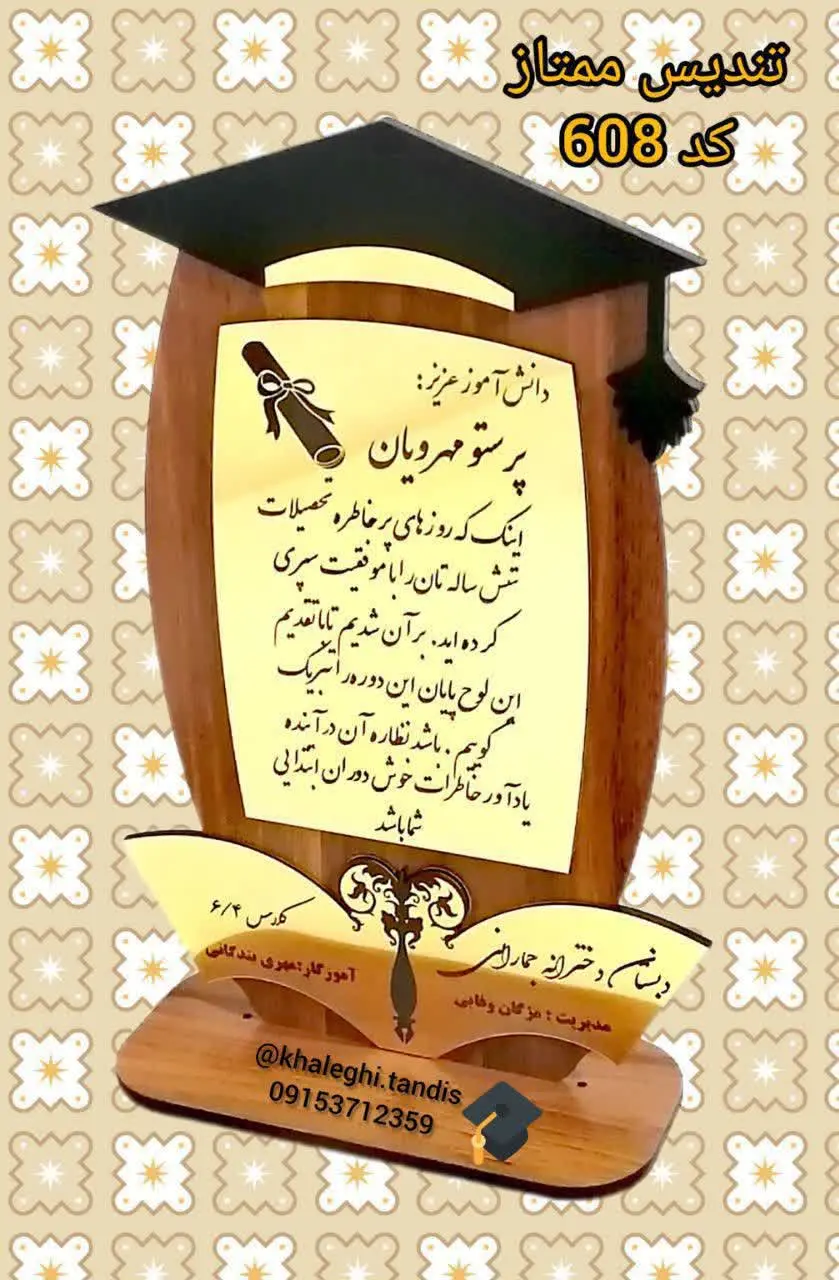 تندیس ممتاز
کد 608
دانش آموز عزیز:
پرستو مهرویان
اینک که روزهای پرخاطره تحصیلات
شش ساله تان را با موفقیت سپری
کرده اید. برآن شدیم تا با تقدیم
این لوح پایان این دوره را تبریک
گوییم . باشد نظاره آن در آینده
یادآور خاطرات خوش دوران ابتدایی
شما باشد
کلاس ۶/۴
آموزگار:مهری بندگانی
دبستان دخترانه جمارانی
مدیریت : مژگان وفایی
@khaleghi.tandis
09153712359